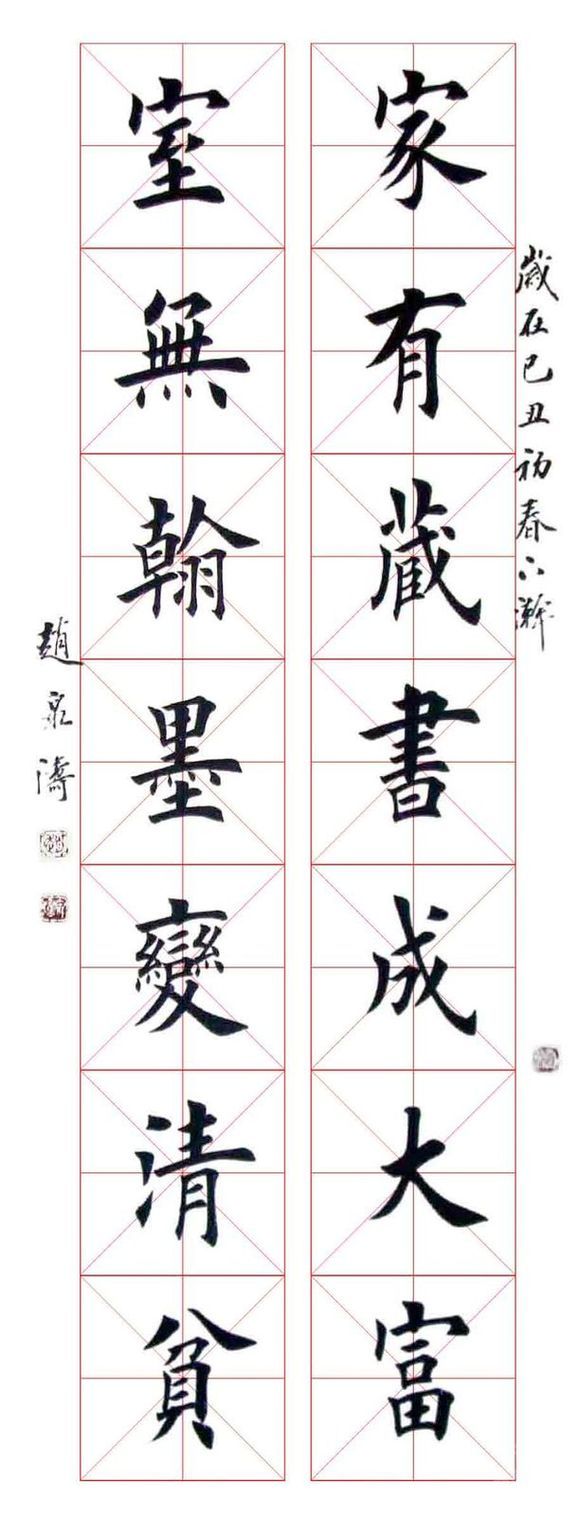 歲在己丑初春下澣
家有蔵書成大富
室無翰墨變清貧
趙泉濤